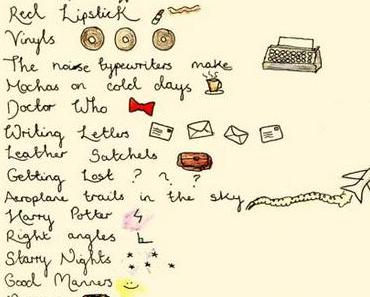 Red Lipstick
Vinyls
The noise typewriters make
Mochas on cold days
Doctor Who
Writing Letters
Leather Satchels
Getting Lost ? ? ?
Aeroplane trails in the sky
Harry Potter
Right angles
Starry Nights
Good Manners